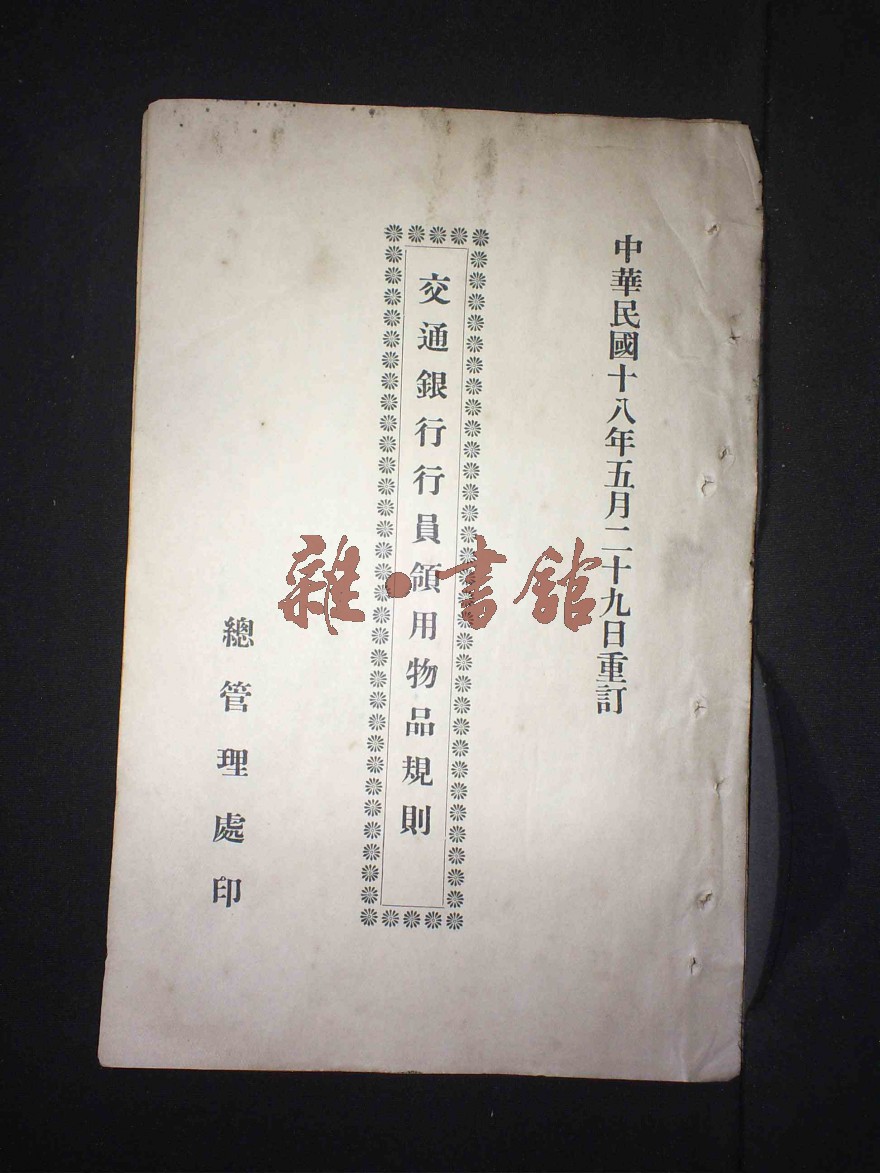 中華民國十八年五月二十九日重訂
交通銀行行員領用物品規則
總管理處印
雜·書館